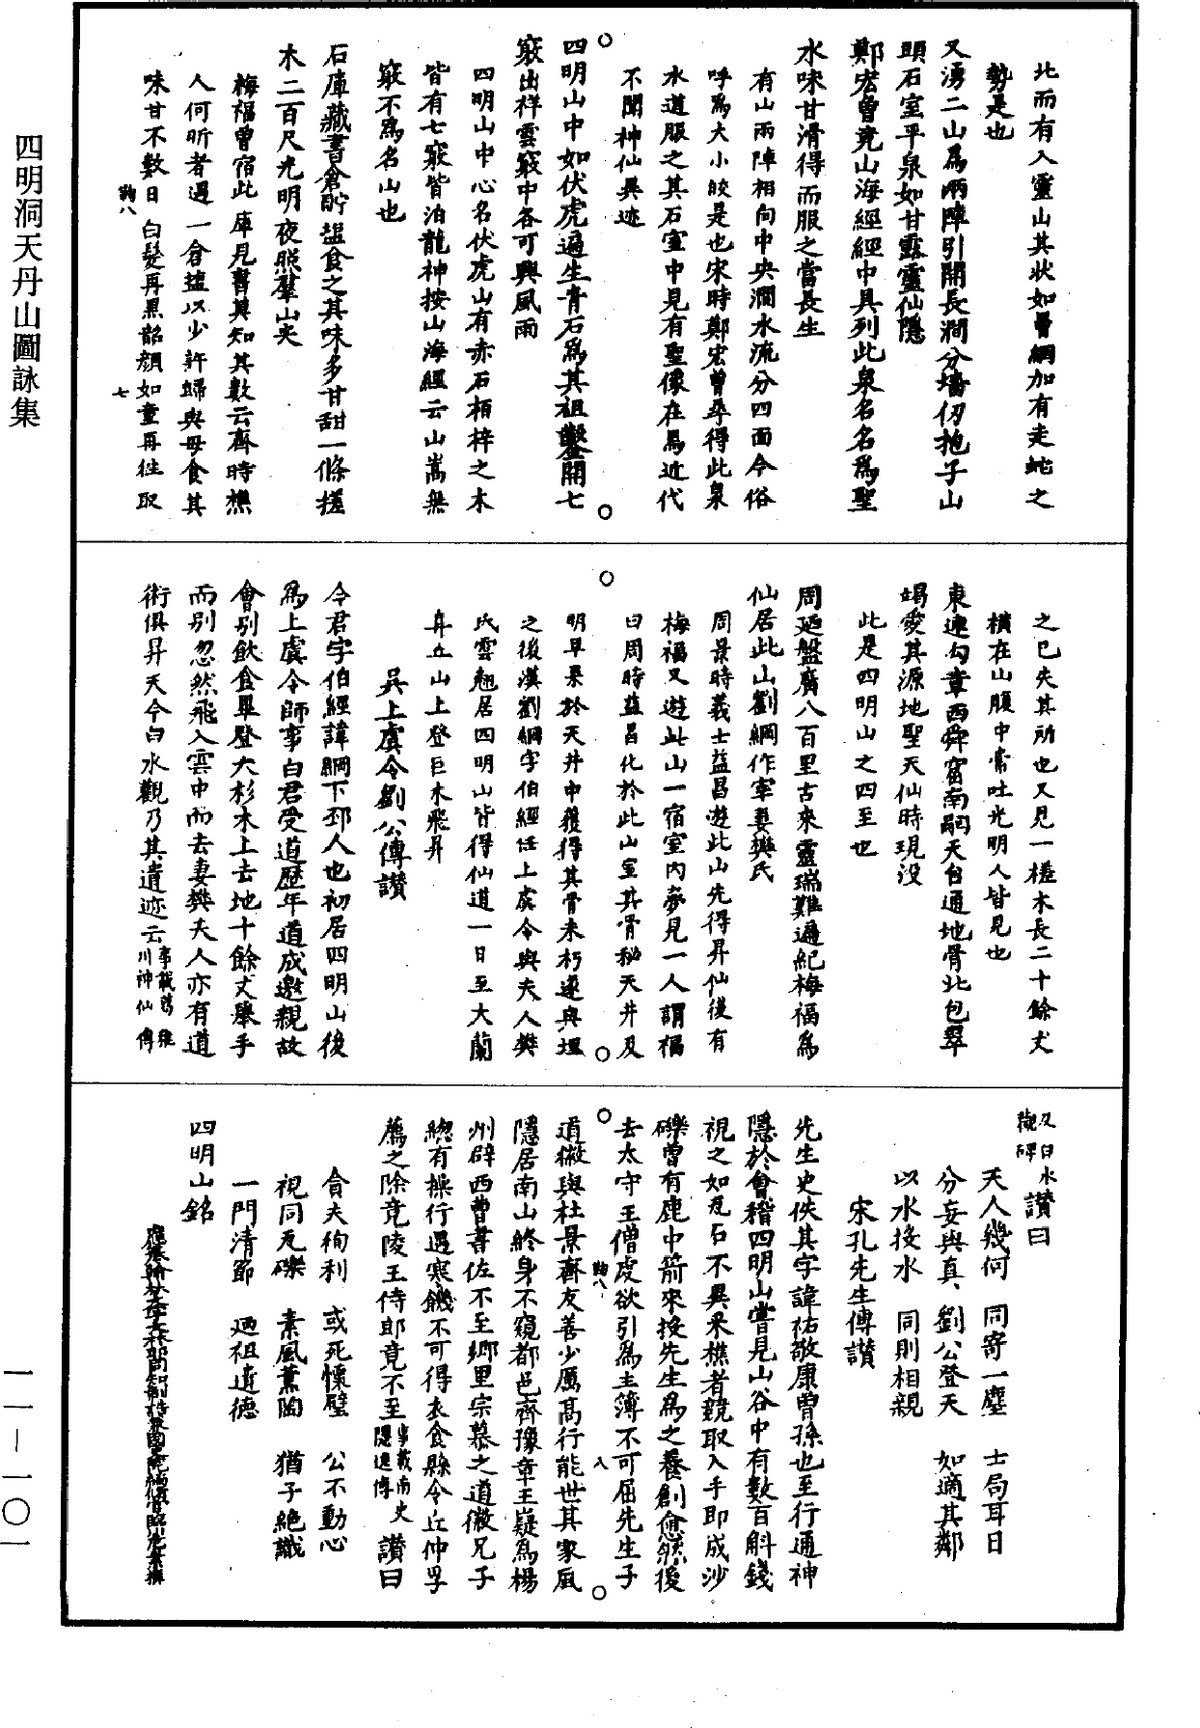 四明洞天丹山圖詠集
北而有入靈山其狀如罾網加有走蛇之
勢是也
又湧二山爲兩陣引開長澗分墻仞抱子山
頭石室平泉如甘露靈仙隱
鄭宏曾竟山海經經中具列此泉名名爲聖
水味甘滑得而服之當長生
有山兩陣相向中央澗水流分四面今俗
呼爲大小皎是也宋時鄭宏曾尋得此泉
水道服之其石室中見有聖像在焉近代
不聞神仙異迹
四明山中如伏虎遍生青石爲其祖鑿開七
竅出祥雲竅中各可興風雨
四明山中心名伏虎山有赤石栢梓之木
皆有七竅皆泊龍神按山海經云山嵩無
竅不爲名山也
石庫藏書倉貯鹽食之其味多甘甜一條槎
木二百尺光明夜照羣山尖
梅福曾宿此庫見書莫知其數云齊時樵
人何昕者遇一倉鹽以少許歸與母食其
味甘不數日白髮再黑韶顏如童再往取
鞠八
七
之已失其所也又見一槎木長二十餘丈
橫在山腹中常吐光明人皆見也
東連勾章西舜窟南嗣天台通地骨北包翠
竭愛其源地聖天仙時現没
此是四明山之四至也
周迴盤廣八百里古來靈瑞難遍紀梅福爲
仙居此山劉綱作宰妻樊氏
周景時義士益昌遊此山先得昇仙後有
梅福又遊此山一宿室内夢見一人謂福
曰周時益昌化於此山室其骨秘天井及
明早果於天井中獲得其骨未朽遂與埋
之後漢劉綱字伯經任上虞令與夫人樊
氏雲翹居四明山皆得仙道一日至大蘭
弃丘山上登巨木飛昇
吳上虞令劉公傳讃
令君字伯經諱綱下邳人也初居四明山後
爲上虞令師事白君受道歷年道成邀親故
會别飲食畢登大杉木上去地十餘丈舉手
而别忽然飛入雲中而去妻樊夫人亦有道
術俱昇天今白水觀乃其遺迹云事載葛稚川神仙傳
及白水觀碑讃曰
天人幾何　同寄一塵　士局耳目
分妄與真　劉公登天　如適其鄰
以水投水　同則相親
宋孔先生傳讃
先生史佚其字諱祐敬康曾孫也至行通神
隱於會稽四明山嘗見山谷中有數百斛錢
視之如瓦石不異采樵者競取入手即成沙
礫曾有鹿中箭來投先生爲之養創愈然後
去太守王僧虔欲引爲主簿不可屈先生子
鞠八
八
道徽與杜景齊友善少厲高行能世其家風
隱居南山終身不窺都邑齊豫章王嶷爲楊
州辟西曹書佐不至鄉里宗慕之道徽兄子
緫有操行遇寒饑不可得衣食縣令丘仲孚
薦之除竟陵王侍郎竟不至事載南史隱逸傳讃曰
貪夫徇利　或死懷璧　公不動心
視同瓦礫　素風薰陶　猶子絶識
一門清節　迺祖遺德
四明山銘
一一—一〇一